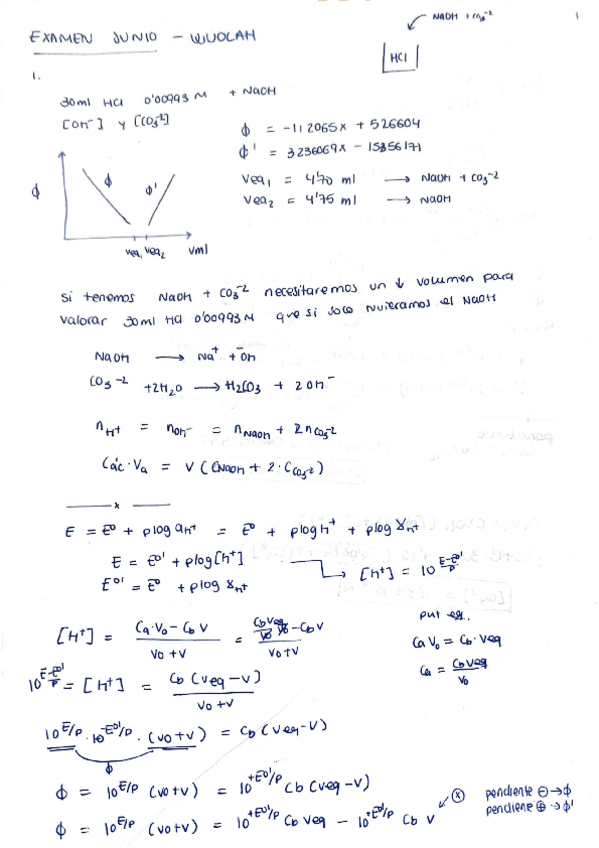 NaOH + CO3^-2
1
EXAMEN JUNIO - WUOLAH
HCl
1.
30ml HCl 0'00993 M + NaOH
[OH^-] y [CO3^-2]
ϕ = -112065x + 526604
ϕ' = 3236069x - 15356171
Veq1 = 4'70 ml → NaOH + CO3^-2
Veq2 = 4'75 ml → NaOH
ϕ ϕ ϕ'
Veq1 Veq2 Vml
Si tenemos NaOH + CO3^-2 necesitaremos un ↓ volumen para
valorar 30ml HCl 0'00993 M que si solo tuvieramos el NaOH
NaOH → Na^+ + OH^-
CO3^-2 + 2H2O → H2CO3 + 2OH^-
nH+ = nOH- = nNaOH + 2nCO3-2
Các·Va = V (CNaOH + 2·CCO3-2)
x
E = E^0 + plog aH+ = E^0 + plog h^+ + plog γH+
E = E^0' + plog[h^+] → [h^+] = 10^((E-E^0')/p)
E^0' = E^0 + plog γH+
[H^+] = (Ca·V0 - Cb V)/(V0+V) = (Cb Veq/V0 V0 - Cb V)/(V0+V)
put eq.
Ca V0 = Cb·Veq
Ca = Cb Veq/V0
10^((E-E^0')/p) = [H^+] = Cb (Veq - V)/(V0+V)
10^(E/p)·10^(-E^0'/p)·(V0+V) = Cb (Veq-V)
ϕ
ϕ = 10^(E/p) (V0+V) = 10^(+E^0'/p) Cb (Veq-V)
ϕ = 10^(E/p) (V0+V) = 10^(+E^0'/p) Cb Veq - 10^(+E^0'/p) Cb V
(x) pendiente ⊖ → ϕ
pendiente ⊕ → ϕ'